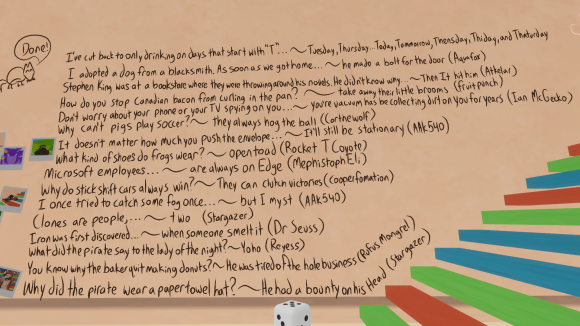 Done!
I've cut back to only drinking on days that start with "T"... ~ Tuesday, Thursday...Today, Tommorrow, Thensday, Thiday, and Thaturday
I adopted a dog from a blacksmith. As soon as we got home... ~ he made a bolt for the door (Aayafox)
Stephen King was at a bookstore where they were throwing around his novels. He didn't know why... ~ Then It hit him (Athelar)
How do you stop Canadian bacon from curling in the pan? ~ take away their little brooms (fruit punch)
Don't worry about your phone or your TV spying on you... ~ you're vacuum has be collecting dirt on you for years (Ian McGecko)
Why can't pigs play soccer? ~ They always hog the ball (Corthewolf)
It doesn't matter how much you push the envelope... ~ It'll still be stationary (AAK540)
What kind of shoes do frogs wear? ~ open toad (Rocket T Coyote)
Microsoft employees... ~ are always on Edge (MephistophEli)
Why do stick shift cars always win? ~ They can clutch victories (Cooperfomation)
I once tried to catch some fog once... ~ but I myst (AAK540)
Clones are people,... ~ two (Stargazer)
Iron was first discovered... ~ when someone smelt it (Dr Seuss)
What did the pirate say to the lady of the night? ~ Yoho (Reyess)
You know why the baker quit making donuts? ~ He was tired of the hole business (Rufus Mongrel)
Why did the pirate wear a paper towel hat? ~ He had a bounty on his Head (Stargazer)